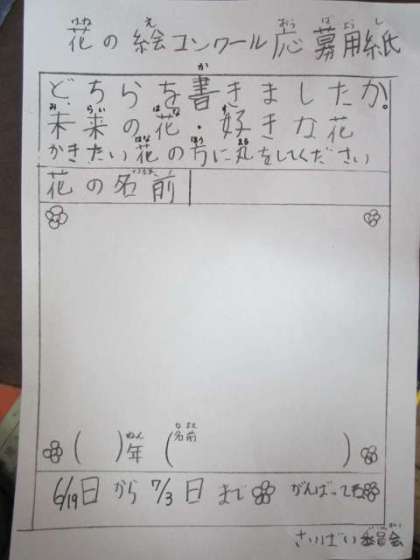 花の絵コンワール応募用紙
どちらを書きましたか。
未来の花・好きな花
かきたい花の方に丸をしてください
花の名前
( )年 (名前 )
6/19日から7/3日まで がんばってね
さいばい委員会